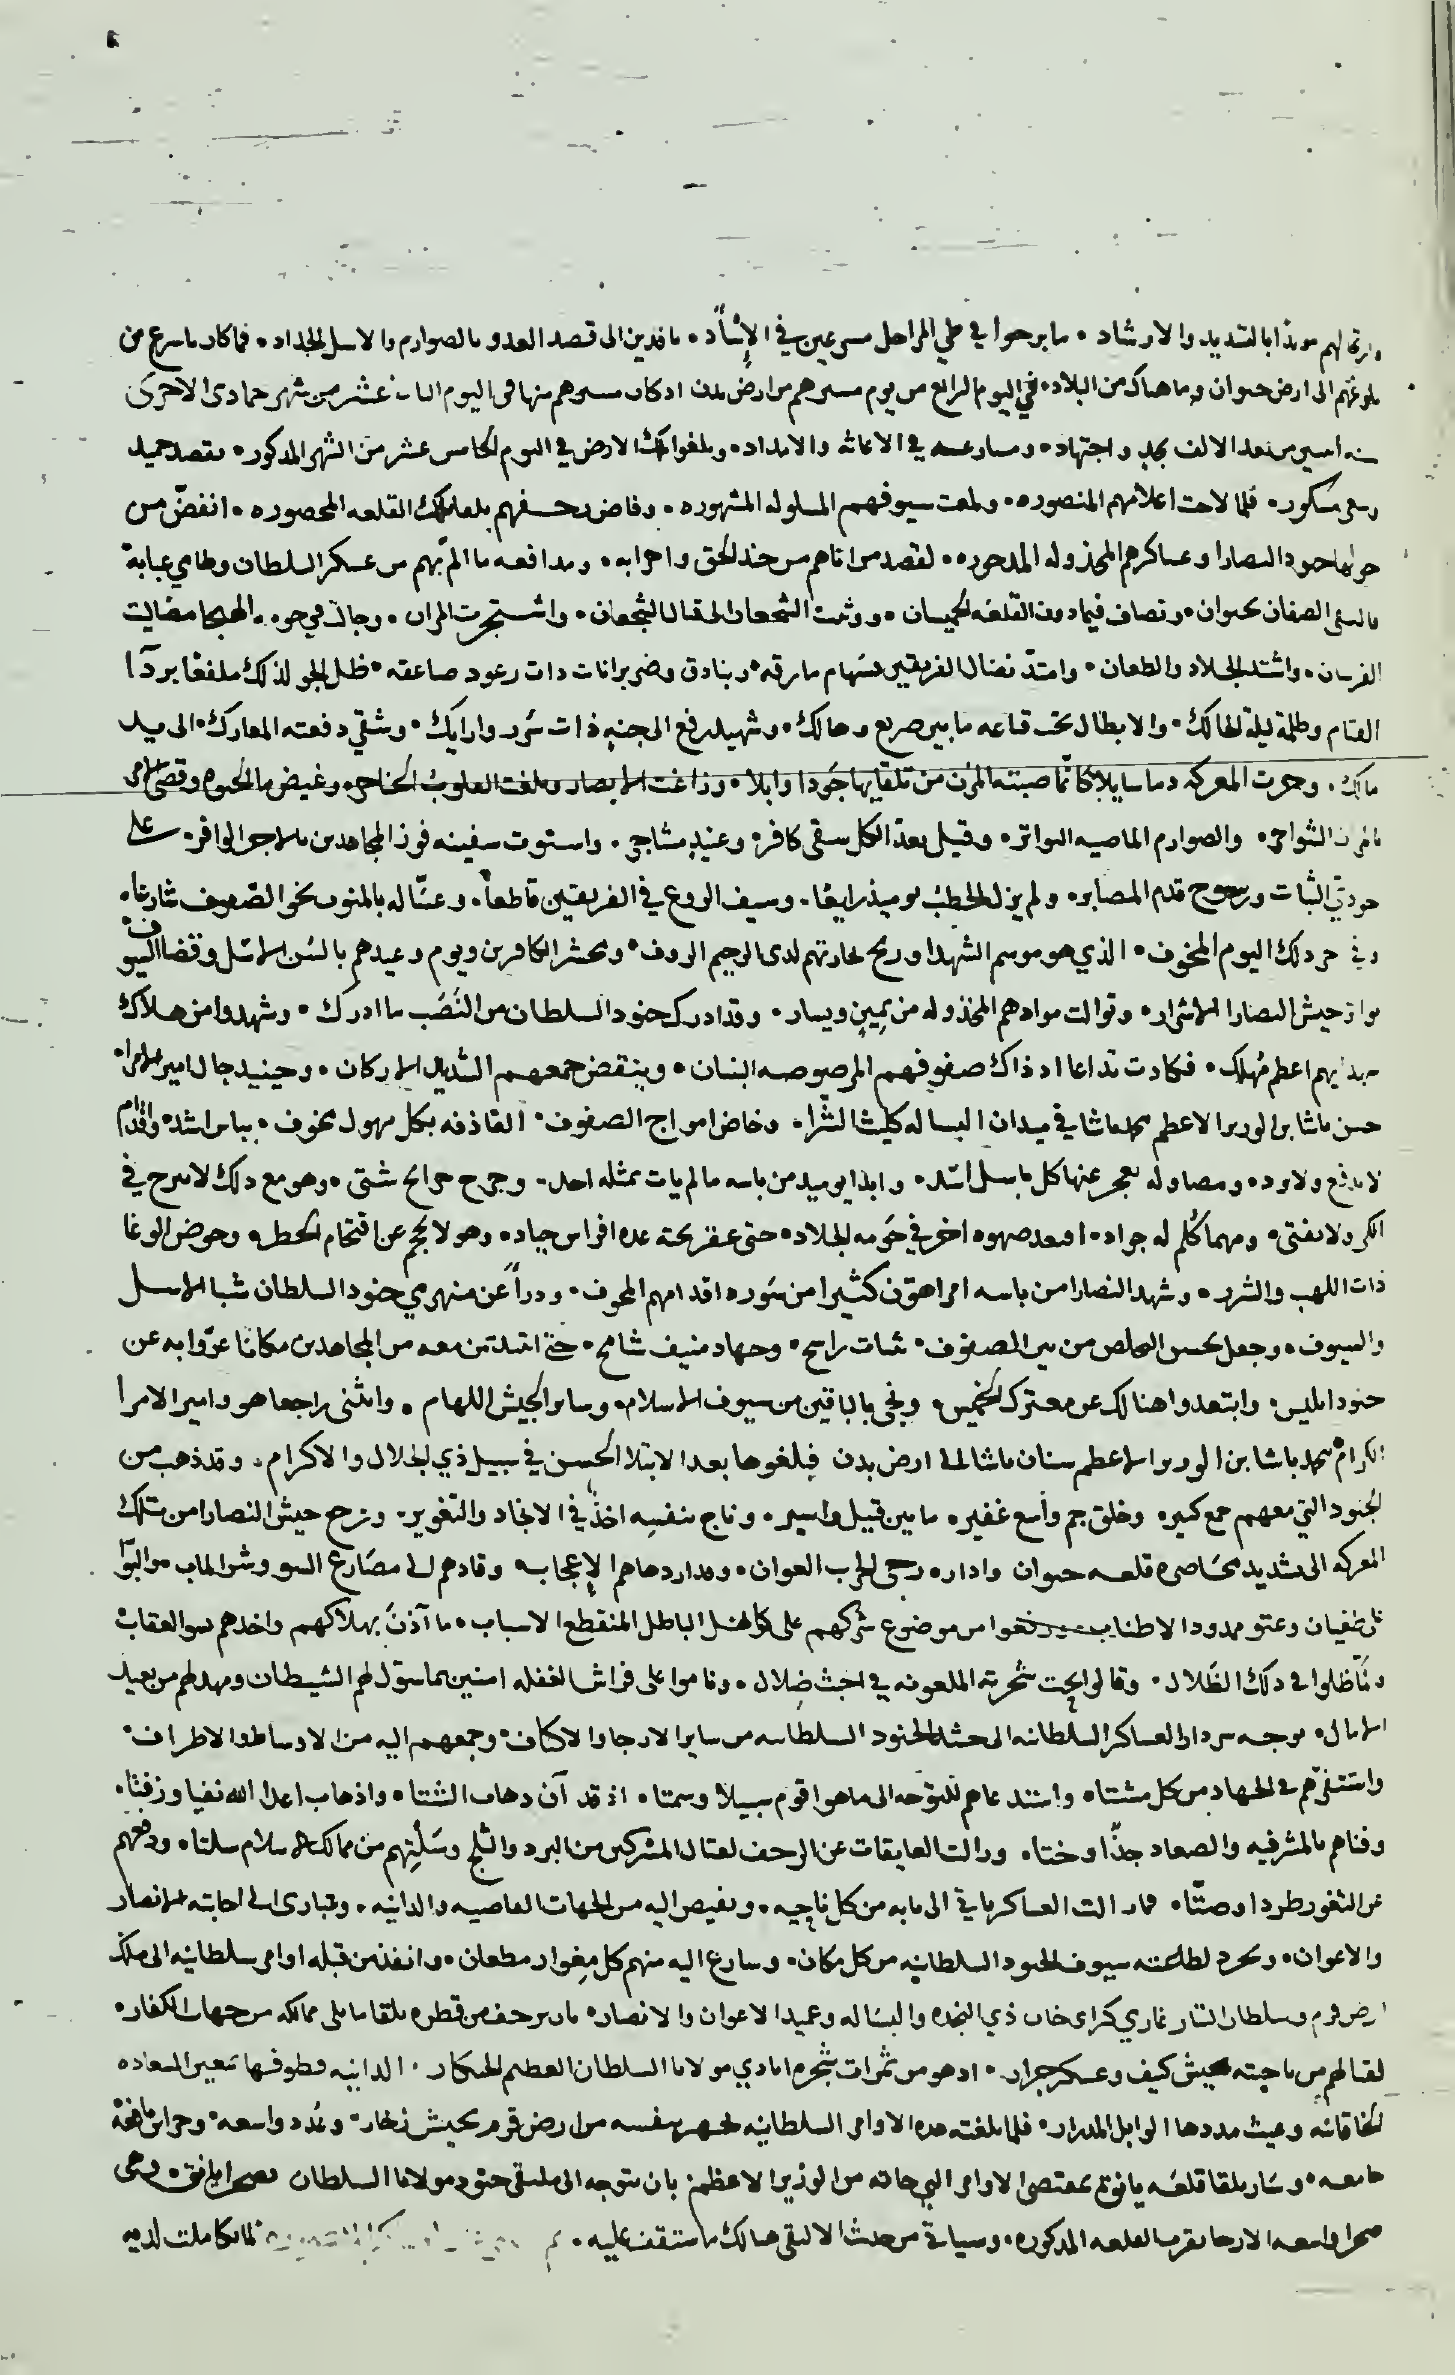 وارتحالهم موبذا بالتسديد والارشاد ٠ ما برحوا في طي المراحل مسرعين في الإسآد ٠ نافذين الى قصد العدو بالصوارم والاسل الحداد ٠ فما كان باسرع من
بلوغهم الى ارض حنوان وما هناك من البلاد ٠ في اليوم الرابع من يوم مسيرهم من ارض بدن اذ كان مسيرهم منها في اليوم عشر من شهر جمادى الاخرى
سنه اثنين من بعد الالف بجد واجتهاد ٠ ومسارعه في الاغاثه والامداد ٠ وبلغوا تلك الارض في اليوم الخامس عشر من الشهر المذكور ٠ بقصد حميد
وسعي مشكور ٠ فلما لاحت اعلامهم المنصوره ٠ ولمعت سيوفهم المسلوله المشهوره ٠ وفاض زحفهم تلقا تلك القلعه المحصوره ٠ انفض من
حولها جنود النصارا وعساكرهم المخذوله المدحوره ٠ لقصد من اتاهم من جند الحق واحزابه ٠ ومدافعه ما الم بهم من عسكر السلطان وطامي عبابه
فالتقى الصفان بحنوان ٠ وتصاف فيما دون القلعه الخميسان ٠ ووثبت الشجعان الى قتال الشجعان ٠ واشتجرت المران ٠ وجالت في حومه الهيجا مصاليت
الفرسان ٠ واشتد الجلاد والطعان ٠ وامتد نضال الفريقين بسهام مارقه ٠ وبنادق وضربزانات ذات رعود صاعقه ٠ ظل الجو لذلك ملفعا بردآ
القتام وظلمة ليله الحالك ٠ والابطال تحت قناعه ما بين صريع وهالك ٠ وشهيد رفع الى جنه ذات سرر وارايك ٠ وشقي دفعته المعارك ٠ الى يد
مالك ٠ وجرت المعركه دما سايلا كانما صبته المزن من تلقايها جودا وابلا ٠ وزاغت الابصار وبلغت القلوب الحناجر ٠ وغيض ما الحيوه وقضي الامر
بالمران الشواجر ٠ والصوارم الماضيه البواتر ٠ وقيل بعدا لكل شقي كافر ٠ وعنيد مشاجر ٠ واستوت سفينه فوز المجاهدين بالاجر الوافر ٠ على
جودي الثبات ورسوخ قدم المصابر ٠ ولم يزل الخطب يوميذ رايعا ٠ وسيف الروع في الفريقين قاطعا ٠ وعسّاله بالمنون نحو الصفوف شارعا ٠
وفي حر ذلك اليوم المخوف ٠ الذي هو موسم الشهدا وربح تجارتهم لدى الرحيم الروف ٠ ومحشر الكافرين ويوم وعيدهم بالسن الاسل وقضا السيوف
تواتر جيش النصارا الاشرار ٠ وتوالت موادهم المخذوله من يمين ويسار ٠ وقد ادرك جنود السلطان من النصب ما ادرك ٠ وشهدوا من هلاك
اعظم مهلك ٠ فكادت تداعا اذ ذاك صفوفهم المرصوصه البنيان ٠ وينتقض جمعهم الشديد الاركان ٠ وحينيذ جال امير الامرا
حسن باشا بن الوزير الاعظم محمد باشا في ميدان البساله كليث الشرا ٠ وخاض امواج الصفوف ٠ القاذفه بكل مهول مخوف ٠ بباس اشد ٠ واقدام
لا يدفع ولا يرد ٠ ومصاوله يعجز عنها كل باسل اشد ٠ وابدا يوميذ من باسه ما لم يات بمثله احد ٠ وجرح جرايح شتى ٠ وهو مع ذلك لا يبرح في
الكر ولا يفتى ٠ ومهما كلم له جواد ٠ اقتعد صهوه اخر في حومه الجلاد ٠ حتى عقر تحته عده افراس جياد ٠ وهو لا يحجم عن اقتحام الخطر ٠ وخوض الوغا
ذات اللهب والشرر ٠ وشهد النصارا من باسه امرا هون كثيرا من سوره اقدامهم المخوف ٠ ودرأ عن منهزمي جنود السلطان شبا الاسل
والسيوف ٠ وجعل يحسن التخلص من بين الصفوف ٠ بثبات راسخ ٠ وجهاد منيف شامخ ٠ حتى انتبذ بمن معه من المجاهدين مكانا عزوا به عن
جنود ابليس ٠ وابتعدوا هنالك عن معترك الخميس ٠ ونجى بالباقين من سيوف الاسلام ٠ وساير الجيش اللهام ٠ وانثنى راجعا هو وامير الامرا
الكرام محمد باشا بن الوزير الاعظم سنان باشا الى ارض بدن فبلغوها بعد الابتلا الحسن في سبيل ذي الجلال والاكرام ٠ وقد ذهب من
الجنود التي معهم جمع كبير ٠ وخلق جم واسع غفير ٠ ما بين قتيل واسير ٠ وناج بنفسه اخذ في الانجاد والتغوير ٠ ورجع جيش النصارا من تلك
المعركه الى تشديد محاصره قلعه حنوان واداره رحى الحرب العوان ٠ وقد ازدهاهم الإعجاب ٠ وقادهم الى مصارع السو وشر الماب
طغيان وعتو ممدود الاطناب من موضوع شركهم على كاهل الباطل المنقطع الاسباب ٠ ما آذن بهلاكهم واخذهم بسو العقاب
ولما ظلوا في ذلك الظلال ٠ وقالوا تحت شجرته الملعونه في اخبث ضلال ٠ وناموا على فراش الغفله امنين بما سوّل لهم الشيطان ومهد لهم من بعيد
الامال ٠ توجه سردار العساكر السلطانيه الى حشد الجنود السلطانيه من ساير الارجا والاكناف ٠ وجمعهم اليه من الاوساط والاطراف ٠
واستنفرهم للجهاد من كل مشتاه ٠ واستدعاهم للتوجه الى ما هو اقوم سبيلا وسمتا ٠ اذ قد آن ذهاب الشتا ٠ واذهاب اعدا الله نفيا ورفتا ٠
وفناهم بالمشرفيه والصعاد جذّا وختا ٠ وزالت العايقات عن الزحف لقتال المشركين من البرد والثلج وسلتهم من ممالك الاسلام سلتا ٠ ودفعهم
عن الثغور طردا وصتّا ٠ فما زالت العساكر تاتي الى بابه من كل ناحيه ٠ وتفيض اليه من الجهات القاصيه والدانيه ٠ وتبارى الى اجابته الانصار
والاعوان ٠ وتجرد لطلعته سيوف الجنود السلطانيه من كل مكان ٠ وسارع اليه منهم كل مغوار مطعان ٠ وانفذ من قبله اوامر سلطانيه الى ملك
ارض قرم وسلطان التتار غازي كراي خان ذي النجده والبساله وعميد الاعوان والانصار ٠ بان يزحف من قطره تلقا ما يلي ممالكه من جهات الكفار ٠
لقتالهم من ناحيته بجيش كثيف وعسكر جرار ٠ اذ هو من ثمرات شجره ايادي مولانا السلطان العظيم الخنكار ٠ الدانيه قطوفها بمعين السعاده
الخاقانيه وغيث مددها الوابل المدرار ٠ فلما بلغته هذه الاوامر السلطانيه تجهز بنفسه من ارض قرم بجيش زخار ٠ وعُدد واسعه ٠
جامعه ٠ وسار تلقا قلعه يانق بمقتضى الاوامر التي جاته من الوزير الاعظم بان يتوجه الى ملتقى جنود مولانا السلطان بصحرا يانق ٠ وهي
صحرا واسعه الارجا بقرب القلعه المذكوره ٠ وسياتي من حديث الالتقى هنالك ما ستقف عليه ٠ فلما تكاملت لديه